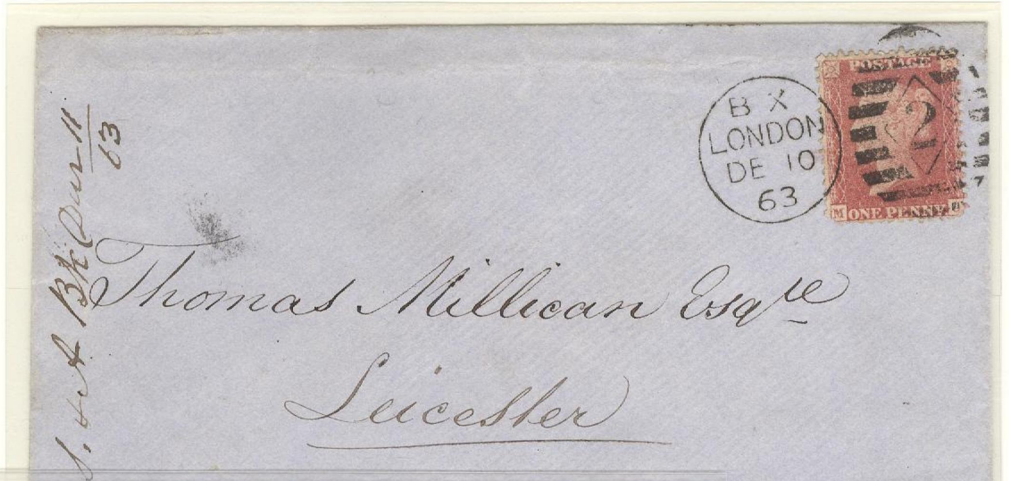 B X
LONDON
DE 10
63
POSTAGE
2
M
ONE PENNY
Thomas Millican Esqre
Leicester
11
63